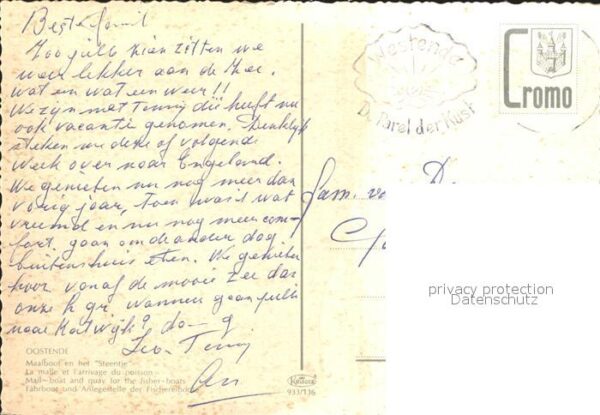 Beste fam.
Zoo jullie zien zitten we
weer lekker aan de Zee.
wat en wat een weer!!
We zijn met Tenny die heeft nu
ook vacantie genomen. Denklijk
steken we deze of volgende
week over naar Engeland.
We genieten nu nog meer dan
vorig jaar, toen was 't wat
vreemd en nu nog meer com-
fort. gaan om de ander dag
buitenshuis eten. We genieten
hoor vanaf de mooie zee dar
onze h. gr. wanneer gaan jullie
naar Katwijk? da- g
Tenny
An
OOSTENDE
Maalboot en het "Steentje"
La malle et l'arrivage du poisson
Mail-boat and quay for the fisher-boats
Fährboot und Anlegestelle der Fischereiboote
933/136
Westende
De Parel der Kust
Cromo
Fam. v
privacy protection
Datenschutz